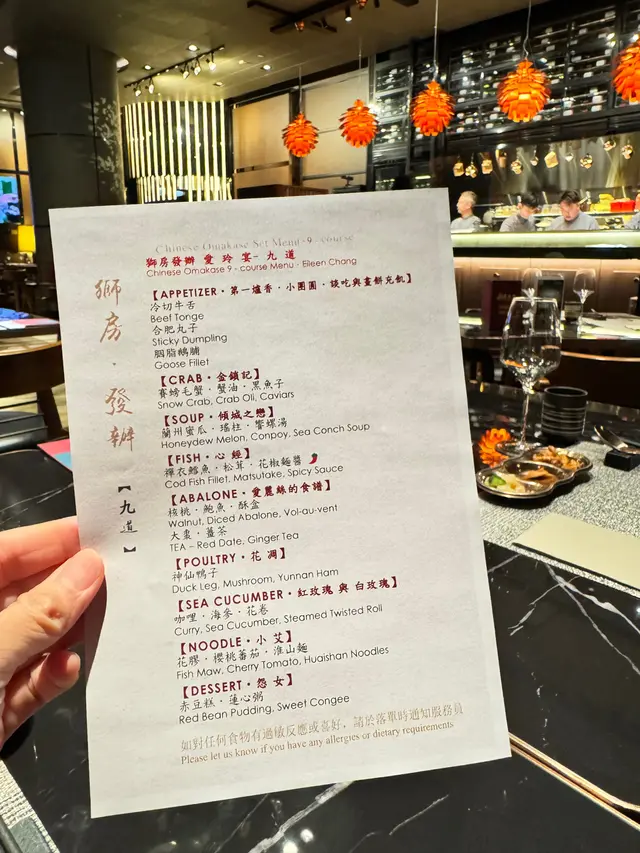 Chinese Omakase Set Menu - 9 - course
獅房發辦 愛 玲 宴 - 九 道
Chinese Omakase 9 - course Menu - Eileen Chang
獅房 · 發辦
【九道】
【APPETIZER · 第一爐香 · 小團圓 · 談吃與畫餅充飢】
冷切牛舌
Beef Tonge
合肥丸子
Sticky Dumpling
胭脂鵝脯
Goose Fillet
【CRAB · 金鎖記】
賽螃毛蟹 · 蟹油 · 黑魚子
Snow Crab, Crab Oli, Caviars
【SOUP · 傾城之戀】
蘭州蜜瓜 · 瑤柱 · 響螺湯
Honeydew Melon, Conpoy, Sea Conch Soup
【FISH · 心 經】
禪衣鱈魚 · 松茸 · 花椒麵醬
Cod Fish Fillet, Matsutake, Spicy Sauce
【ABALONE · 愛麗絲的食譜】
核桃 · 鮑魚 · 酥盒
Walnut, Diced Abalone, Vol-au-vent
大棗 · 薑茶
TEA – Red Date, Ginger Tea
【POULTRY · 花 凋】
神仙鴨子
Duck Leg, Mushroom, Yunnan Ham
【SEA CUCUMBER · 紅玫瑰 與 白玫瑰】
咖哩 · 海參 · 花卷
Curry, Sea Cucumber, Steamed Twisted Roll
【NOODLE · 小 艾】
花膠 · 櫻桃蕃茄 · 淮山麵
Fish Maw, Cherry Tomato, Huaishan Noodles
【DESSERT · 怨 女】
赤豆糕 · 蓮心粥
Red Bean Pudding, Sweet Congee
如對任何食物有過敏反應或喜好，請於落單時通知服務員
Please let us know if you have any allergies or dietary requirements